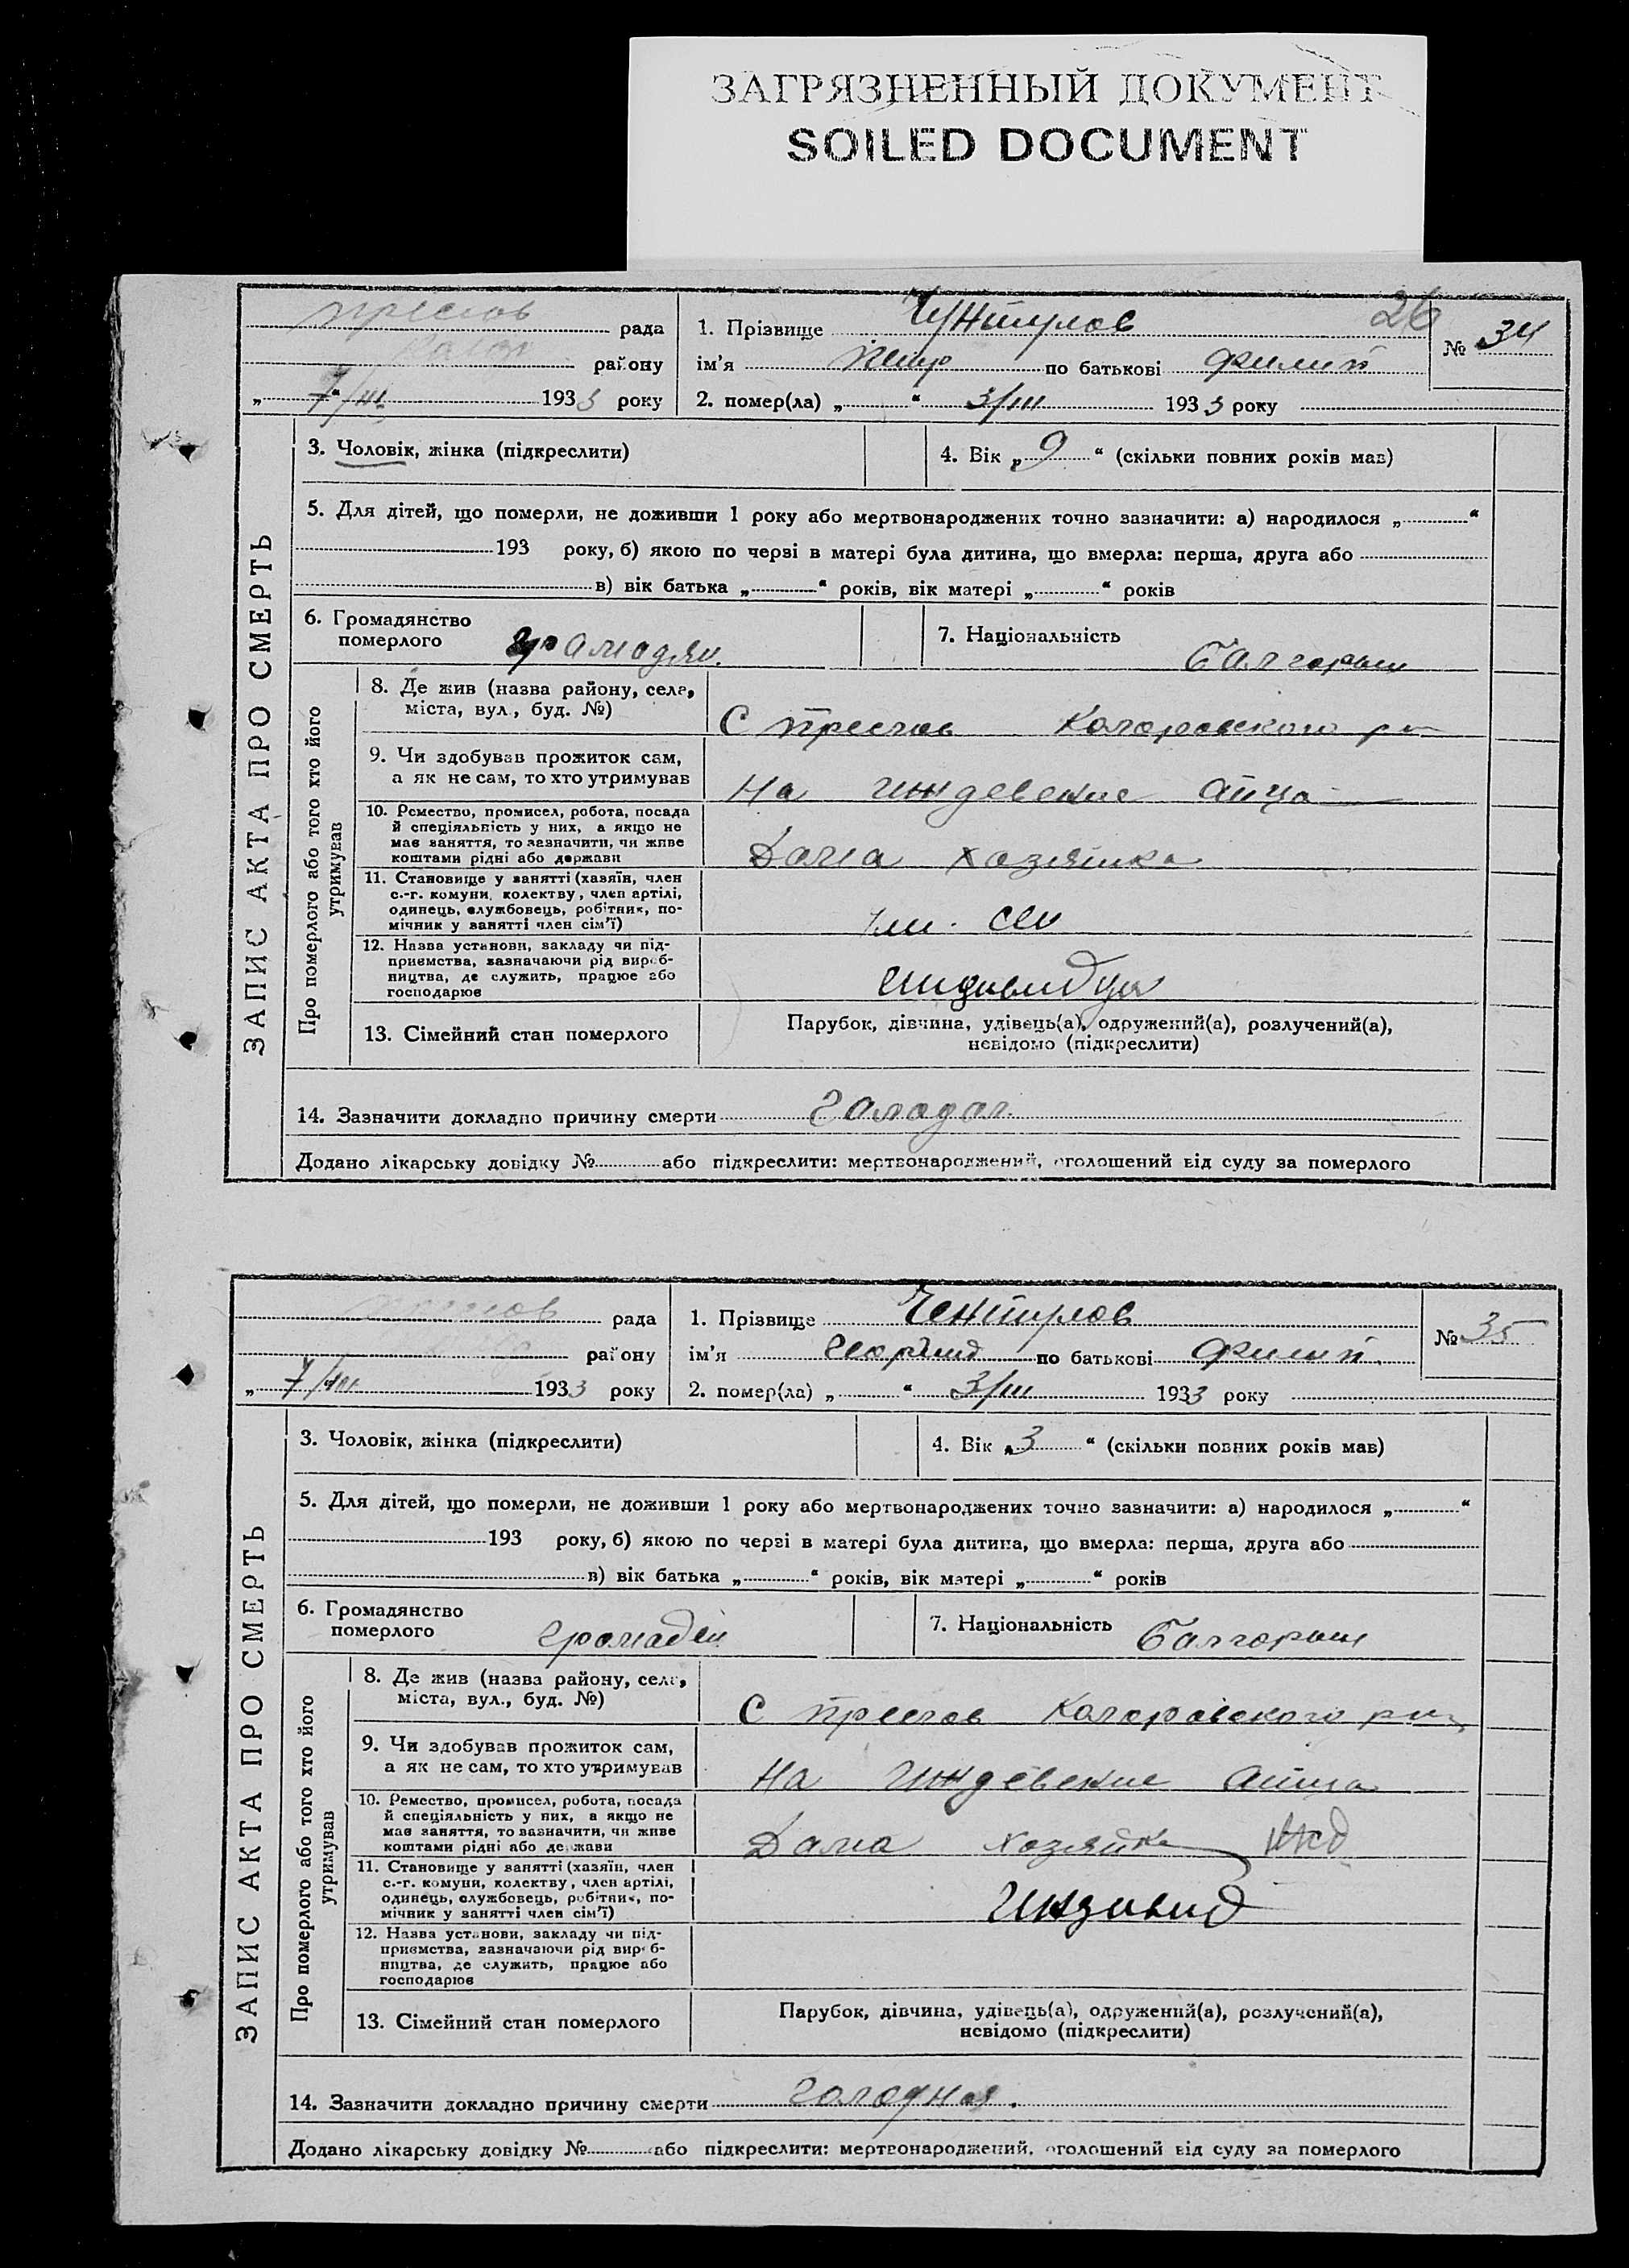 ЗАГРЯЗНЕННЫЙ ДОКУМЕНТ
SOILED DOCUMENT
26
преслов рада
району
„ 7/III “ 1933 року
1. Прізвище Чунтулов
ім’я Петр по батькові Филип
2. помер(ла) „ “ 3/III 1933 року
№ 34
ЗАПИС АКТА ПРО СМЕРТЬ
3. Чоловік, жінка (підкреслити)
4. Вік „ 9 “ (скільки повних років мав)
5. Для дітей, що померли, не доживши 1 року або мертвонароджених точно зазначити: а) народилося „ “
193 року, б) якою по черзі в матері була дитина, що вмерла: перша, друга або
в) вік батька „ “ років, вік матері „ “ років
6. Громадянство
померлого громадян.
7. Національність
Болгорын
Про померлого або того хто його
утримував
8. Де жив (назва району, села,
міста, вул., буд. №)
С Преслав Коларовского
9. Чи здобував прожиток сам,
а як не сам, то хто утримував
На отца
10. Ремество, промисел, робота, посада
й спеціяльність у них, а якщо не
має заняття, то зазначити, чи живе
коштами рідні або держави
Дома хозяйка
11. Становище у занятті (хазяїн, член
с.-г. комуни, колектву, член артілі,
одинець, службовець, робітник, по-
мічник у занятті член сім’ї)
12. Назва установи, закладу чи під-
приємства, зазначаючи рід вироб-
ництва, де служить, працює або
господарює
13. Сімейний стан померлого
Парубок, дівчина, удівець(а), одружений(а), розлучений(а),
невідомо (підкреслити)
14. Зазначити докладно причину смерти
Додано лікарську довідку № або підкреслити: мертвонароджений, оголошений від суду за померлого
рада
району
„ 7/III 1933 року
1. Прізвище Чентулов
ім’я Георгий по батькові Филип.
2. помер(ла) „ “ 3/III 1933 року
№ 35
ЗАПИС АКТА ПРО СМЕРТЬ
3. Чоловік, жінка (підкреслити)
4. Вік „ 3 “ (скільки повних років мав)
5. Для дітей, що померли, не доживши 1 року або мертвонароджених точно зазначити: а) народилося „ “
193 року, б) якою по черзі в матері була дитина, що вмерла: перша, друга або
в) вік батька „ “ років, вік матері „ “ років
6. Громадянство
померлого
7. Національність Болгорын
Про померлого або того хто його
утримував
8. Де жив (назва району, села,
міста, вул., буд. №)
С Преслав Коларовского
9. Чи здобував прожиток сам,
а як не сам, то хто утримував
На отца
10. Ремество, промисел, робота, посада
й спеціяльність у них, а якщо не
має заняття, то зазначити, чи живе
коштами рідні або держави
Дома хозяйка
11. Становище у занятті (хазяїн, член
с.-г. комуни, колектву, член артілі,
одинець, службовець, робітник, по-
мічник у занятті член сім’ї)
Индивид
12. Назва установи, закладу чи під-
приємства, зазначаючи рід вироб-
ництва, де служить, працює або
господарює
13. Сімейний стан померлого
Парубок, дівчина, удівець(а), одружений(а), розлучений(а),
невідомо (підкреслити)
14. Зазначити докладно причину смерти голодная.
Додано лікарську довідку № або підкреслити: мертвонароджений, оголошений від суду за померлого